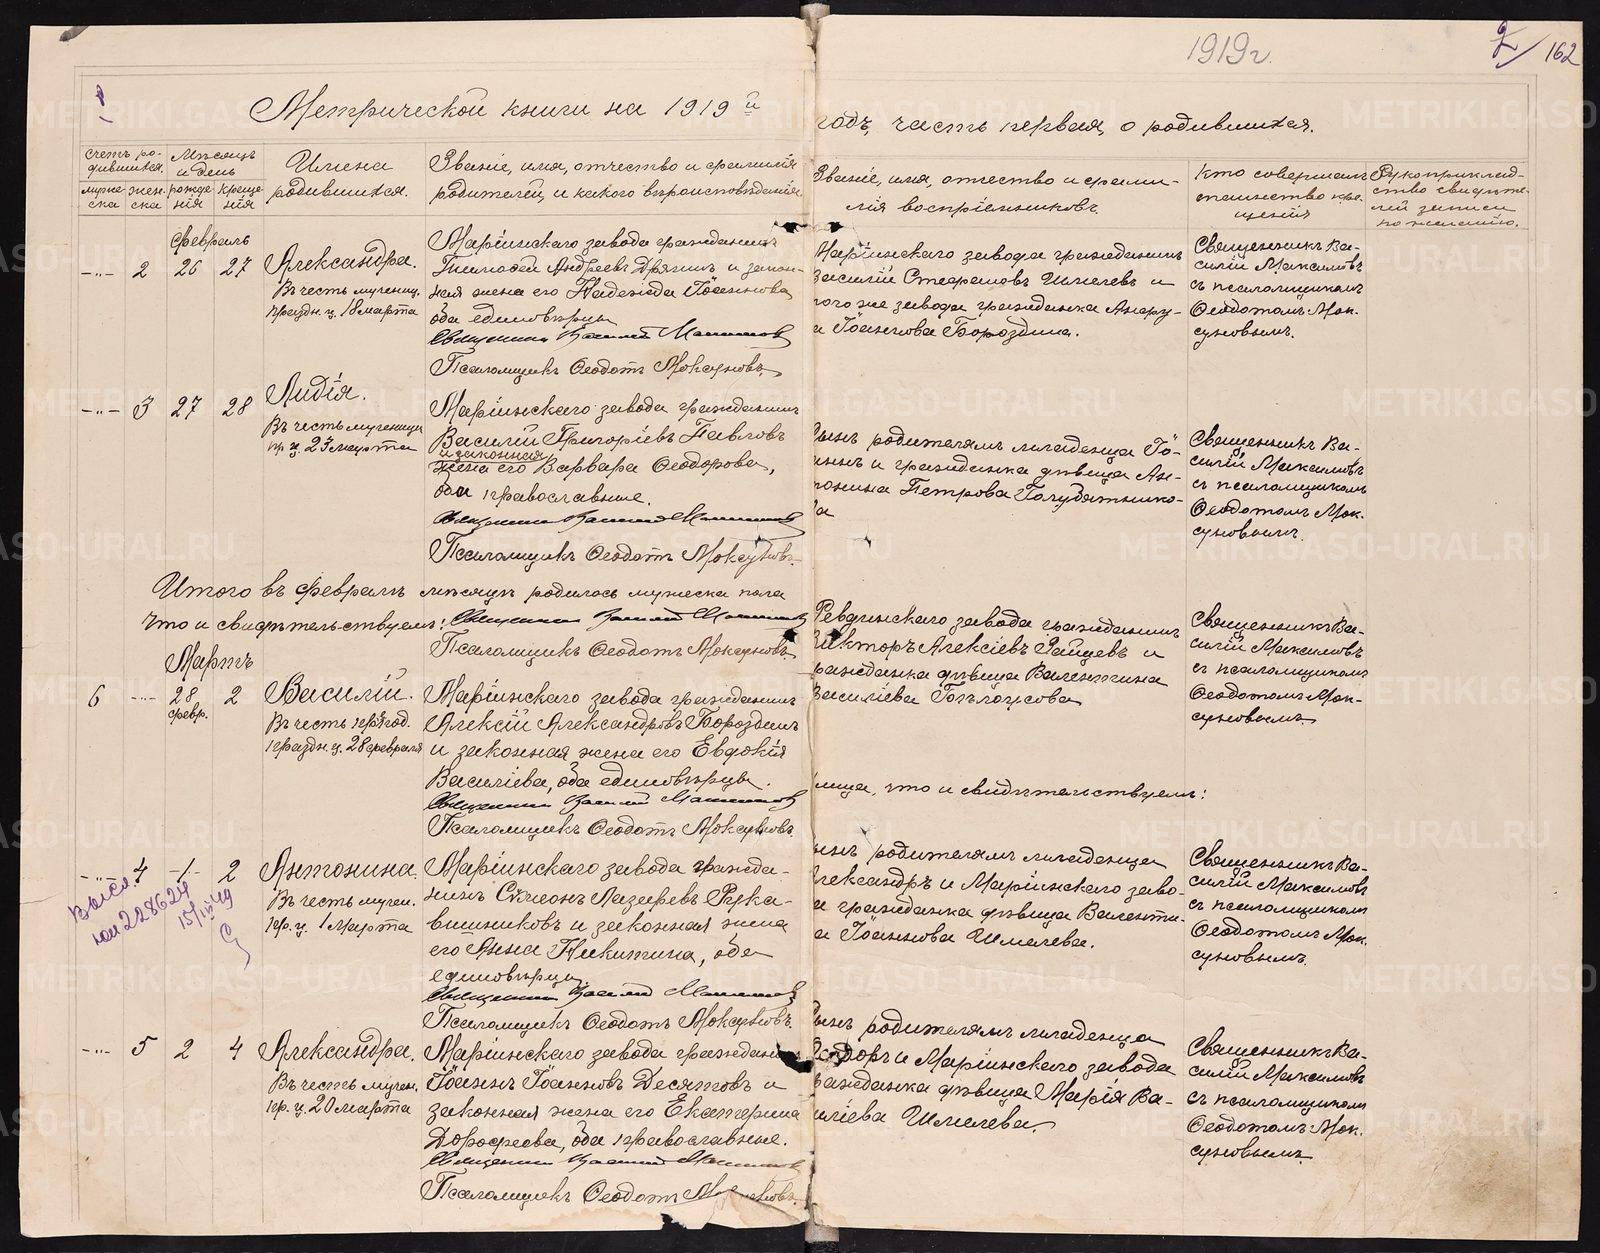 1919 г.
2/ 162
Метрической книги на 1919 й
годъ, часть первая, о родившихся.
Счетъ ро-
дившихся.
муже
ска
жен-
ска
Мѣсяцъ
и день
рожде-
нія
креще-
нія
Имена
родившихся.
Званіе, имя, отчество и фамилія
родителей, и какого вѣроисповѣданія.
Званіе, имя, отчество и фами-
лія воспріемниковъ.
Кто совершалъ
таинство кре-
щенія
Рукоприклад-
ство свидѣте-
лей записи
по желанію.
Февраль
-"- 2 26 27
Александра.
Въ честь мучениц.
праздн. ц. 18 марта
Маріинскаго завода гражданинъ
Тимофей Андреевъ Дрягинъ и закон-
ная жена его Надежда Іоаннова
оба единовѣрцы
Священникъ Василій Максимовъ
Псаломщикъ Ѳеодотъ Моксуновъ.
Маріинскаго завода гражданинъ
Василій Шмелевъ и
того же завода гражданка
а Іоаннова Бороздина.
Священникъ Ва-
силій Максимовъ
съ псаломщикомъ
Ѳеодотомъ Мок-
суновымъ.
-"- 3 27 28
Лидія.
Въ честь мученицы
пр. ц. 23 марта
Маріинскаго завода гражданинъ
Василій Григоріевъ Павловъ
и законная
жена его Варвара Ѳеодорова,
оба православные.
Священникъ Василій Максимовъ
Псаломщикъ Ѳеодотъ Моксуновъ.
сынъ родителямъ младенца Іо-
аннъ и гражданка дѣвица Ан-
тонина Петрова Голубятнико-
ва
Священникъ Ва-
силій Максимовъ
съ псаломщикомъ
Ѳеодотомъ Мок-
суновымъ.
Итого въ февралѣ мѣсяцѣ родилось мужеска пола
Что и свидѣтельствуемъ: Священникъ Василій Максимовъ
Псаломщикъ Ѳеодотъ Моксуновъ.
Мартъ
6 -"- 28 2
февр.
Василій.
Въ честь препод.
праздн. ц. 28 февраля
Маріинскаго завода гражданинъ
Алексій Александровъ Бороздинъ
и законная жена его Евдокія
Василіева, оба единовѣрцы.
Священникъ Василій Максимовъ
Псаломщикъ Ѳеодотъ Моксуновъ.
Ревдинскаго завода гражданинъ
Викторъ Алексіевъ Зайцевъ и
гражданка дѣвица Валентина
Василіева Голѣлоусова
Священникъ Ва-
силій Максимовъ
съ псаломщикомъ
Ѳеодотомъ Мок-
суновымъ.
лица, что и свидѣтельствуемъ:
-"- 4 1 2
Высл.
228624
Антонина.
Въ честь мучен.
пр. ц. 1 Марта
Маріинскаго завода гражда-
нинъ Симеонъ Лазаревъ Рука-
вишниковъ и законная жена
его Анна Никитина, оба
единовѣрцы
Священникъ Василій Максимовъ
Псаломщикъ Ѳеодотъ Моксуновъ.
сынъ родителямъ младенца
Александръ и Маріинскаго заво-
да гражданка дѣвица Валенти-
на Іоаннова Шмелева.
Священникъ Ва-
силій Максимовъ
съ псаломщикомъ
Ѳеодотомъ Мок-
суновымъ.
-"- 5 2 4
Александра.
Въ честь мучен.
пр. ц. 20 марта
Маріинскаго завода гражданинъ
Іоаннъ Іоанновъ Десятовъ и
законная жена его Екатерина
Дорофеева, оба православные.
Священникъ Василій Максимовъ
Псаломщикъ Ѳеодотъ Моксуновъ.
сынъ родителямъ младенца
Ѳеодоръ и Маріинскаго завода
гражданка дѣвица Марія Ва-
силіева Шмелева.
Священникъ Ва-
силій Максимовъ
съ псаломщикомъ
Ѳеодотомъ Мок-
суновымъ.
METRIKI.GASO-URAL.RU